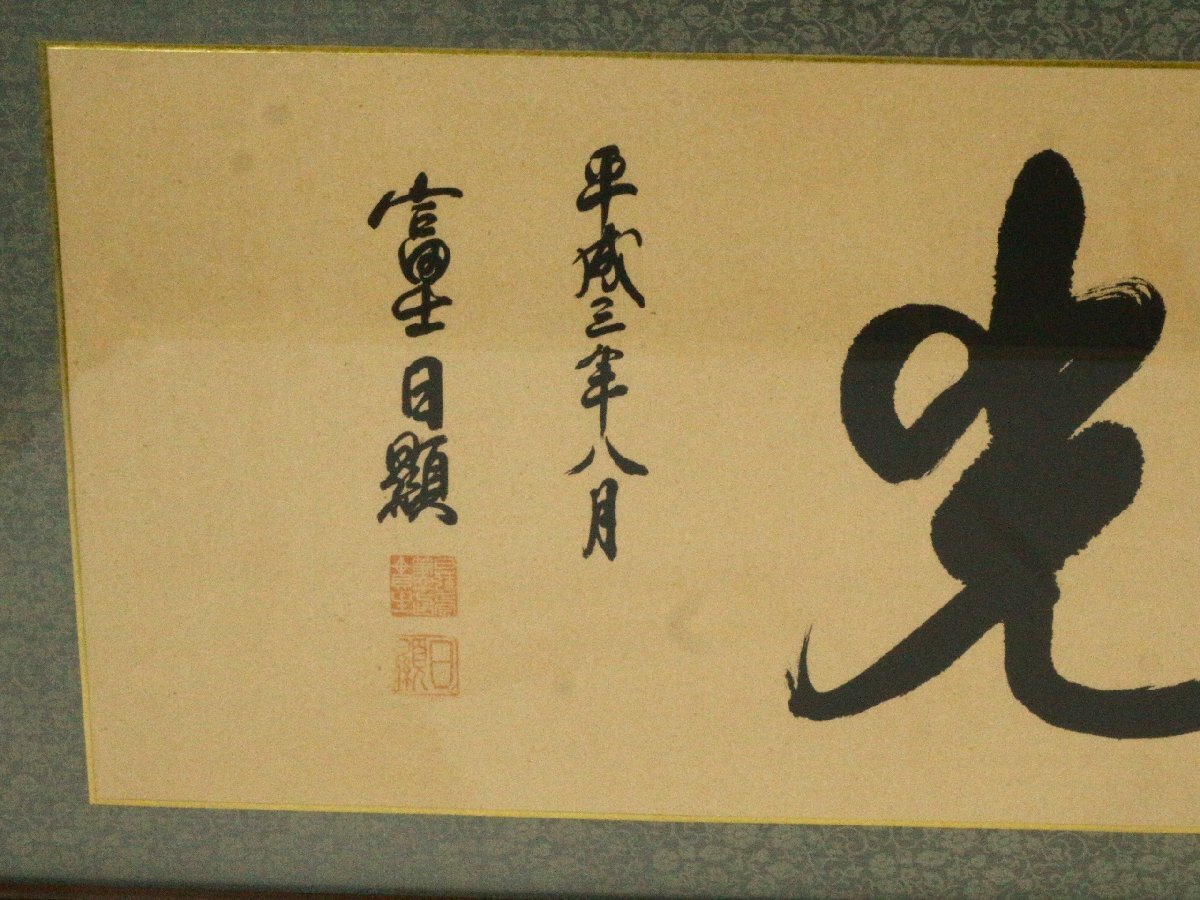 光
平成三年八月
富士日顕
日顕